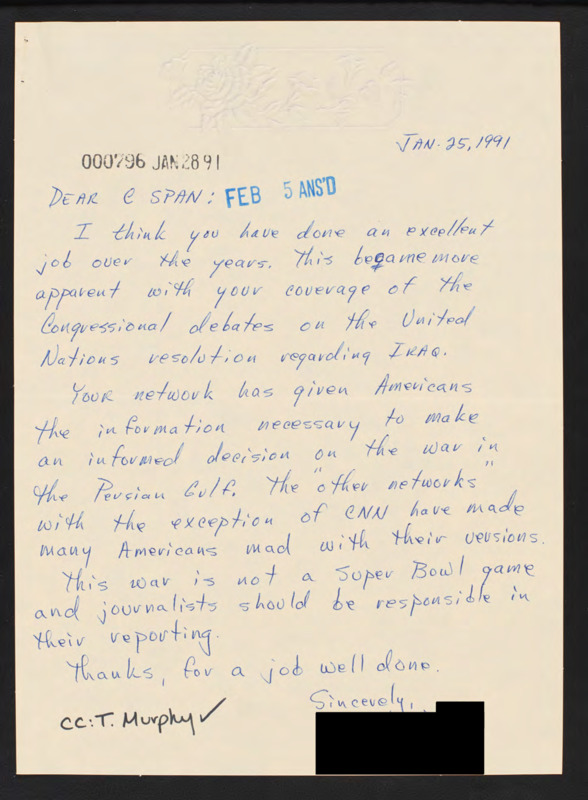 JAN. 25, 1991
000796 JAN 28 91
DEAR C SPAN: FEB 5 ANS'D
I think you have done an excellent
job over the years. This became more
apparent with your coverage of the
Congressional debates on the United
Nations resolution regarding IRAQ.
YOUR network has given Americans
the information necessary to make
an informed decision on the war in
the Persian Gulf. The "other networks"
with the exception of CNN have made
many Americans mad with their versions.
This war is not a Super Bowl game
and journalists should be responsible in
their reporting.
Thanks, for a job well done.
Sincerely,
cc: T. Murphy ✓